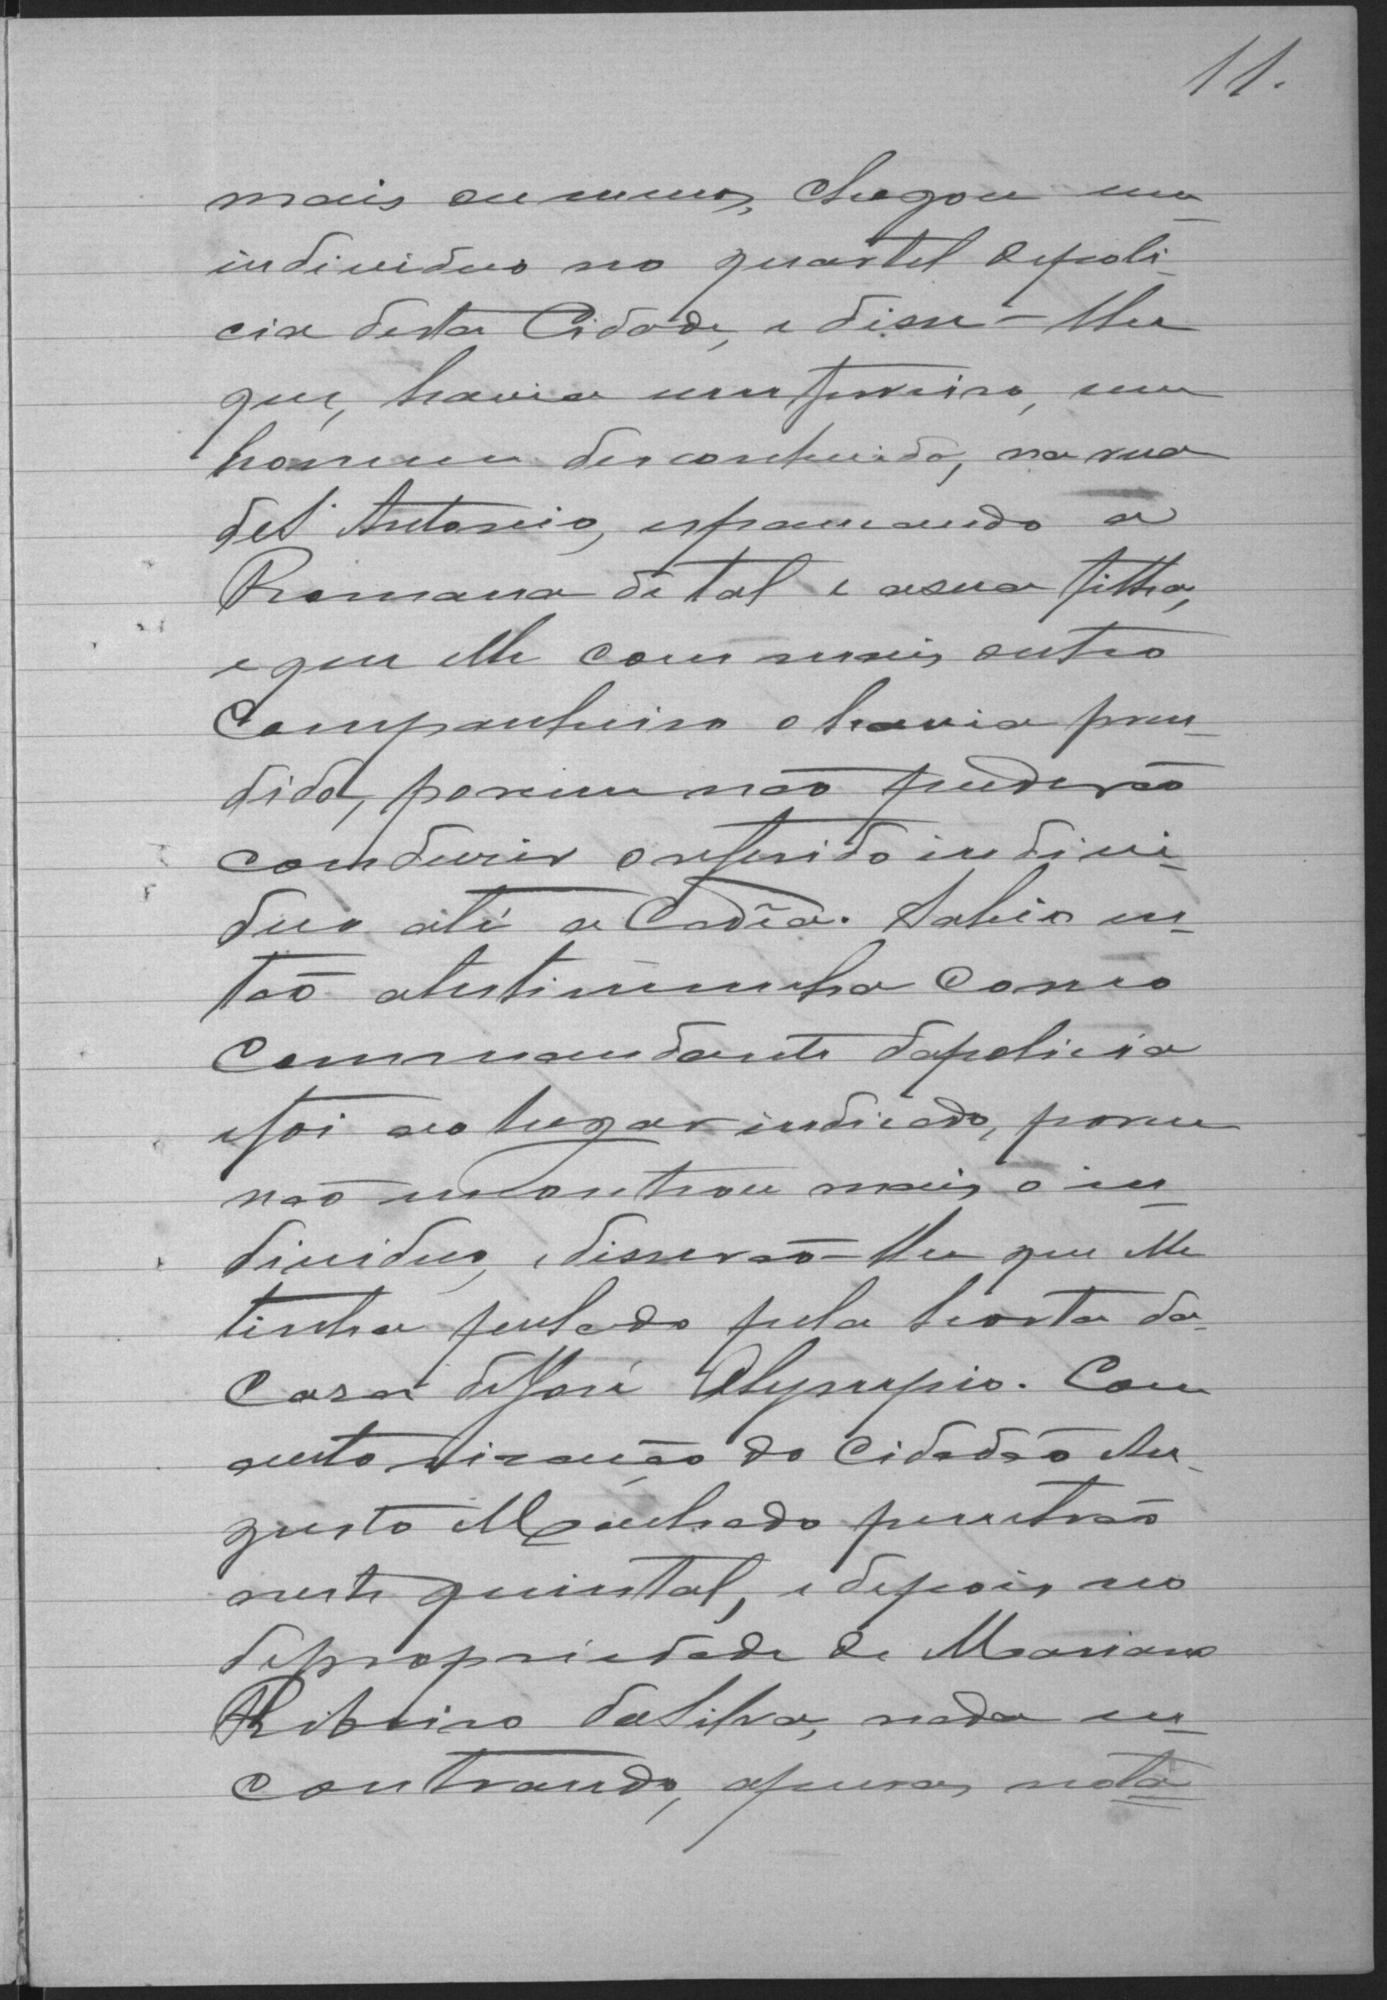 11.
mais ou menos, chegou um
individuo no quartel de poli-
cia desta Cidade, e disse-lhe
que, havia um
homem desconhecido, na rua
de Sto Antonio, espancando a
Romana de tal e a sua filha,
e que elle com mais outro
Companheiro o havia pren-
dido, porem não puderão
conduzir o referido indivi-
duo até a Cadêa. Sahio en-
tão a testimunha como
Commandante da policia
e foi ao lugar indicado, porem
não encontrou mais o in-
dividuo, e disserão-lhe que elle
tinha pulado pela horta da
Casa de José Olympio. Com
autorização do Cidadão Au-
gusto Machado penetrão
neste quintal, e depois no
de propriedade de Mariano
Ribeiro da Silva, nada en-
contrando, apenas nota